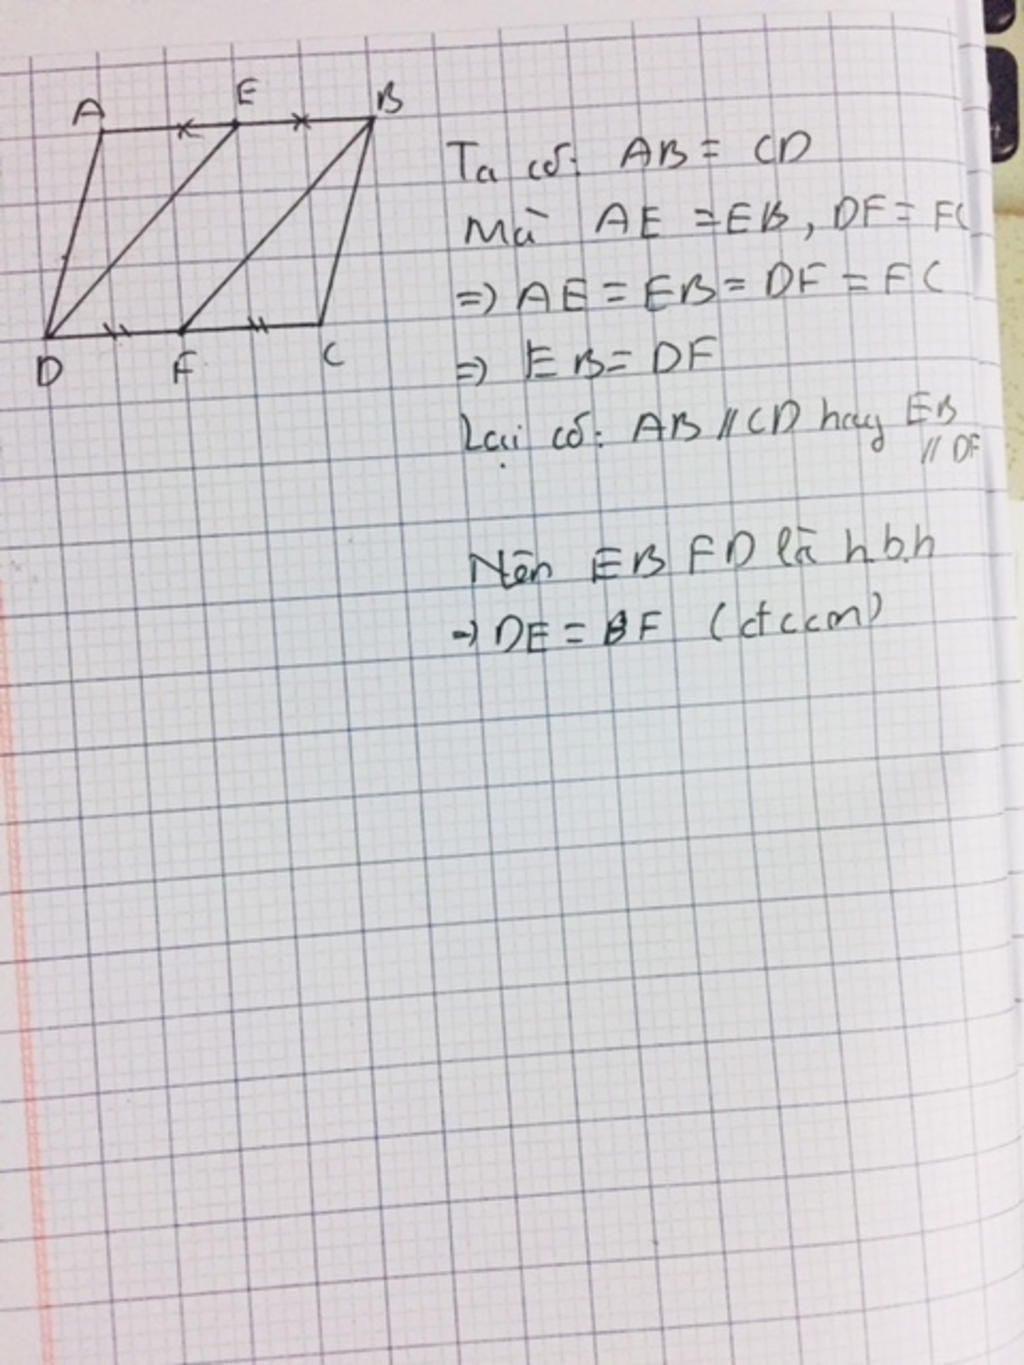 A E B
D F C
Ta có: AB = CD
Mà AE = EB, DF = FC
=) AE = EB = DF = FC
=) EB = DF
Lại có: AB // CD hay EB
// DF
Nên EBFD là h.b.h
=) DE = BF (đccm)